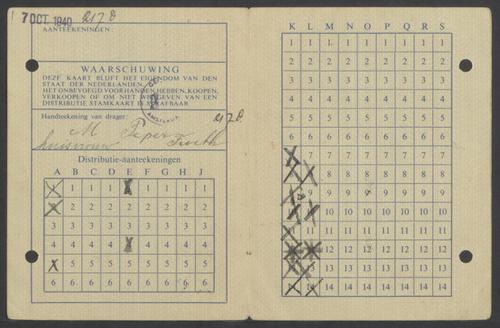 7 OCT. 1940 217 B
AANTEEKENINGEN:
WAARSCHUWING
DEZE KAART BLIJFT HET EIGENDOM VAN DEN
STAAT DER NEDERLANDEN.
HET ONBEVOEGD VOORHANDEN HEBBEN, KOOPEN,
VERKOOPEN OF OM NIET WEGGEVEN VAN EEN
DISTRIBUTIE STAMKAART IS STRAFBAAR
Handteekening van drager:
M Peper
huisvrouw
Distributie-aanteekeningen
A B C D E F G H J
1 1 1 1 1 1 1 1 1
2 2 2 2 2 2 2 2 2
3 3 3 3 3 3 3 3 3
4 4 4 4 4 4 4 4 4
5 5 5 5 5 5 5 5 5
6 6 6 6 6 6 6 6 6
K L M N O P Q R S
1 1 1 1 1 1 1 1 1
2 2 2 2 2 2 2 2 2
3 3 3 3 3 3 3 3 3
4 4 4 4 4 4 4 4 4
5 5 5 5 5 5 5 5 5
6 6 6 6 6 6 6 6 6
7 7 7 7 7 7 7 7 7
8 8 8 8 8 8 8 8 8
9 9 9 9 9 9 9 9 9
10 10 10 10 10 10 10 10 10
11 11 11 11 11 11 11 11 11
12 12 12 12 12 12 12 12 12
13 13 13 13 13 13 13 13 13
14 14 14 14 14 14 14 14 14